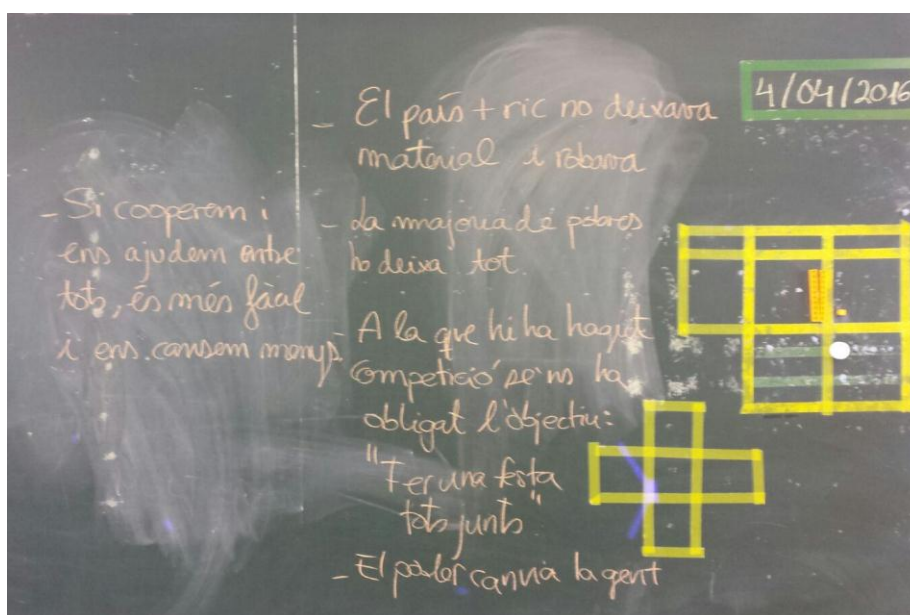 4/04/2016
- Si cooperem i
ens ajudem entre
tots, és més fàcil
i ens cansem menys
- El país + ric no deixava
material i robava
- La majoria de pobres
ho deixa tot.
A la que hi ha hagut
competició se'ns ha
obligat l'objectiu:
"Fer una festa
tots junts"
- El poder canvia la gent